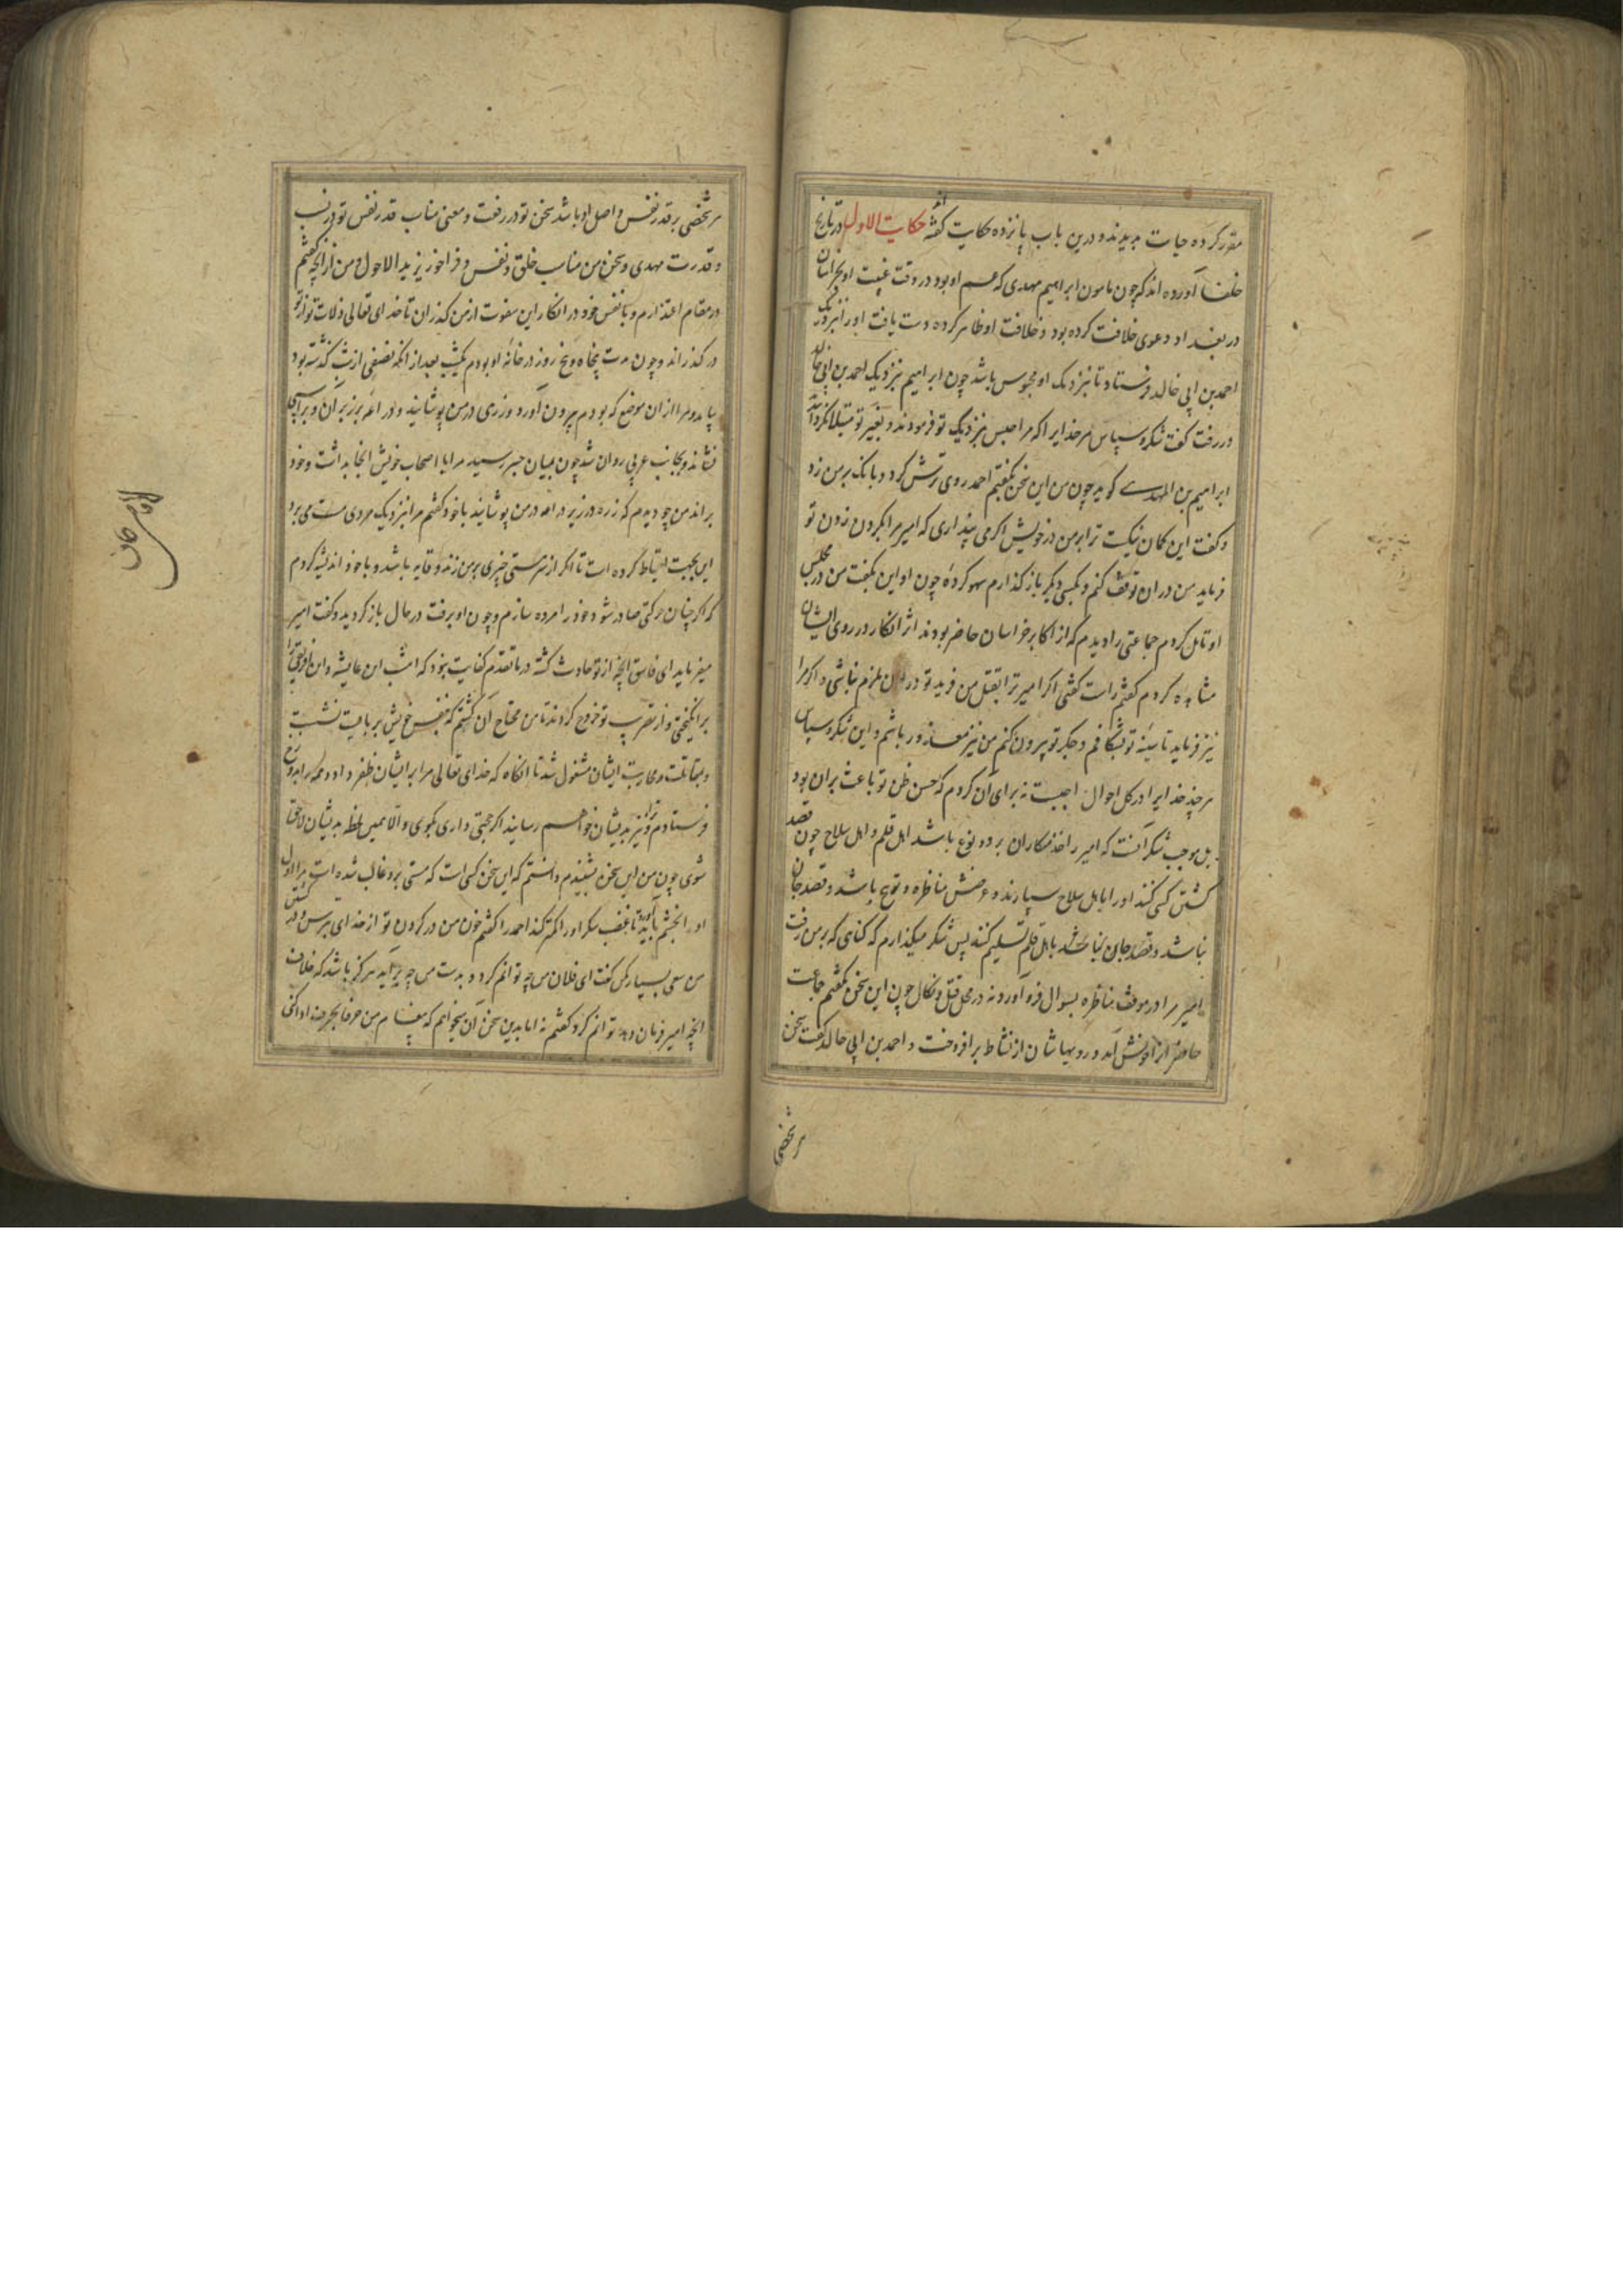 مقرر کرده حیات بدیدند و درین باب پانزده حکایت گفته اند حکایت الاول در تاریخ
خلفا آورده اند که چون مامون ابراهیم مهدی که عم او بود در وقت غیبت او بخراسان
در بغداد دعوی خلافت کرده بود و خلافت او ظاهر کرده دست یافت اورا نزدیک
احمد بن ابی خالد فرستاد تا نزدیک او محبوس باشد چون ابراهیم نزدیک احمد بن ابی خالد
در رفت گفت شکر و سپاس مر خدایرا که مرا حبس نزدیک تو فرمودند و بغیر تو مبتلا نکردانید
ابراهیم بن المهدی کوید چون من این سخن بگفتم احمد روی ترش کرد و بانک بر من زد
و گفت این کمان نیک است ترا بر من در خویش اکر می پنداری که امیر مرا بگردن زدن تو
فرماید من دران توقف کنم و بکسی دیگر باز گذارم سهو کرده چون او این بگفت من در مجلس
او تامل کردم جماعتی را دیدم که از اکابر خراسان حاضر بودند اثر انکار در روی ایشان
مشاهده کردم گفتم راست گفتی اکر امیر ترا بقتل من فرماید تو در ان ملزم نباشی و اکر مرا
نیز فرماید تا سینه تو بشکافم و جکر تو بیرون کنم من نیز معذور باشم و این شکر و سپاس
هر چند خدایرا در کل احوال واجبست نه برای آن کردم که حسن ظن تو باعث بران بود
بل موجب شکر آنست که امیر را خدمتکاران بر دو نوع باشد اهل قلم و اهل سلاح چون قصد
کشتن کسی کنند اورا باهل سلاح سپارند و غرضش مناظره و توبیخ باشد و قصد جان
نباشد و قصد جان نباشد باهل قلم تسلیم کنند پس شکر میگذارم که کناهی که بر من رفت
امیر مرا در موقف مناظره بسوال فرو آورد نه در محل قتل و نکال چون این سخن بگفتم جماعت
حاضر انرا خوش آمد و رویهاشان از نشاط برافروخت و احمد بن ابی خالد گفت سخن
هر شخصی
هر شخصی بر قدر نفس و اصل او باشد سخن تو در رفعت و معنی مناسب قدر نفس تو در نسب
و قدرت مهدی و سخن من مناسب خلق و نفس و فراخور یزید الاحول و من از انچه گفتم
در مقام اعتذارم و با نفس خود در انکار این هفوت از من گذران تا خدای تعالی زلات تو از تو
در گذراند و چون مدت پنجاه و پنج روز در خانه او بودم یکشب بعد از انکه نصفی از شب گذشته بود
بیامد و مرا ازان موضع که بودم بیرون آورد و زرهی در من پوشانید و دراعه بر زبر آن و بر اسبی
نشاند و بجانب غربی روان شد چون بمیان جسر رسید مرا با اصحاب خویش انجا بداشت و خود
براند من چو دیدم که زره در زیر دراعه در من پوشانید با خود گفتم مرا نزدیک مردی مست می برد
این بجهت احتیاط کرده است تا اکر از سر مستی خنجری بر من زند وقایه باشد و با خود اندیشه کردم
که اکر چنان حرکتی صادر شود خود را مرده سازم و چون او برفت در حال باز گردید و گفت امیر
میفرماید ای فاسق انچه از تو حادث گشته در ما تقدم کفایت نبود که امشب ابن عایشه و ابن افریقی را
برانگیختی و از تقرب تو خروج کردند تا من محتاج آن گشتم که بنفس خویش بر بایست نشست
و بمقاتلت و محاربت ایشان مشغول شد تا انکاه که خدای تعالی مرا بر ایشان ظفر داد و همه را بدوزخ
فرستادم و ترا نیز بدیشان خواهم رسانید اکر حجتی داری بگوی والا همین لحظه بدیشان لاحق
شوی چون من این سخن بشنیدم دانستم که این سخن کسی است که مستی برو غالب شده است مرا اول
اورا بخشم باید آورد تا غضب سکر اورا کمتر کند احمد را گفتم خون من در گردن تو از خدای بترس و در کشتن
من سعی بسیار مکن گفت ای فلان من چه توانم کرد و بدست من چه برآید هرگز باشد که خلاف
انچه امیر فرمان دهد توانم کرد گفتم نه اما بدین سخن آن میخواهم که پیغام من حرفا بحرف ادا کنی